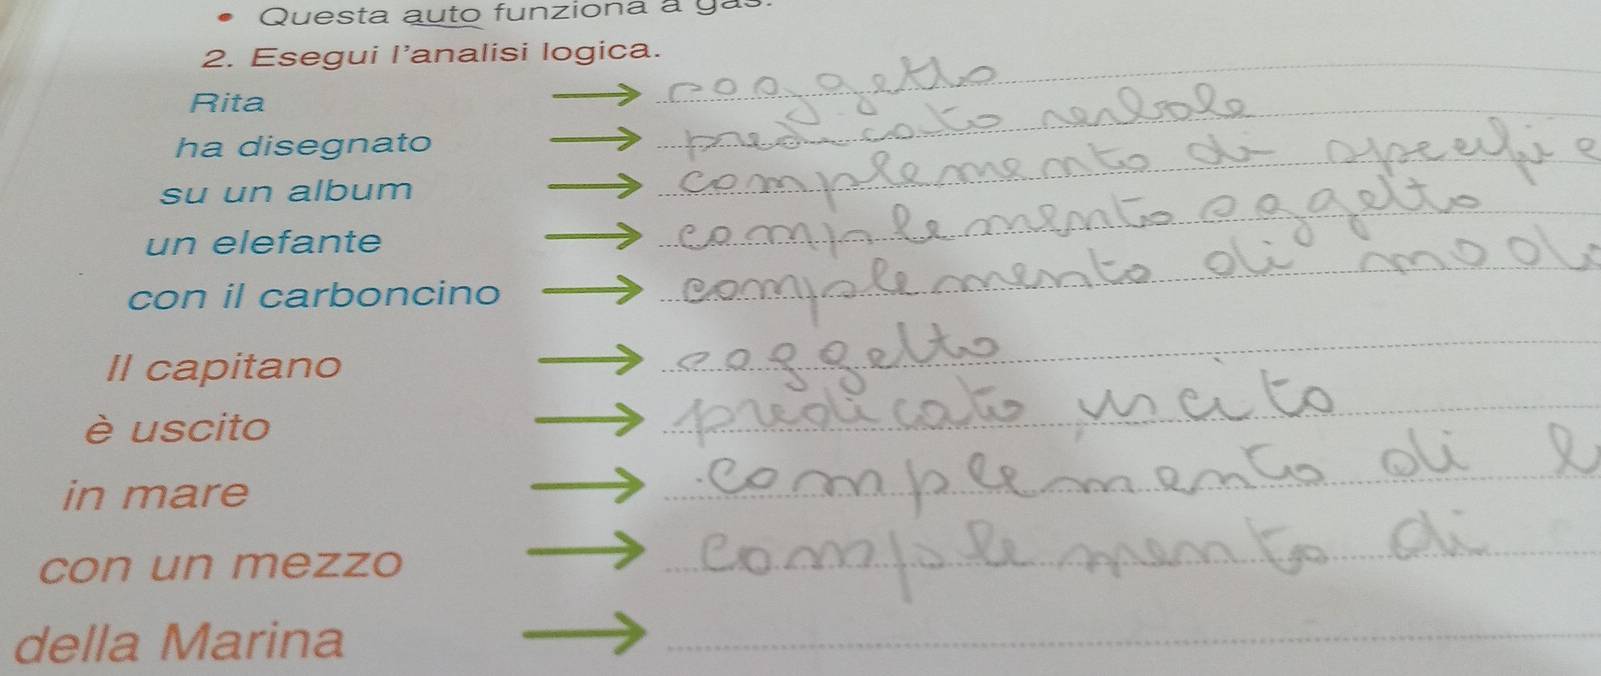 • Questa auto funziona a gas.
2. Esegui l'analisi logica.
Rita → soggetto
ha disegnato → predicato verbale
su un album → complemento di specific
un elefante → complemento oggetto
con il carboncino → complemento di modo
Il capitano → soggetto
è uscito → predicato
in mare → complemento di l
con un mezzo → complemento di
della Marina →